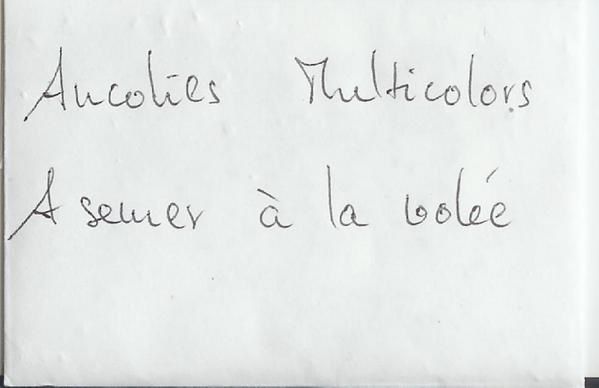 Ancolies Multicolors
A semer à la volée